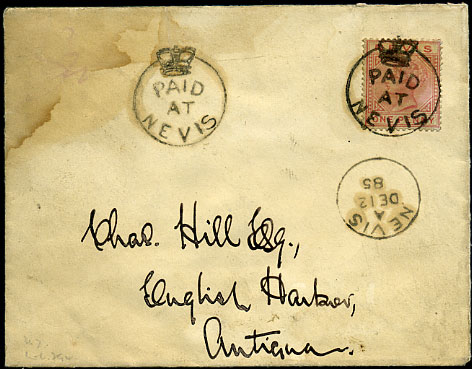 PAID
AT
NEVIS
PAID
AT
NEVIS
ONE PENNY
NEVIS
A
DE 12
85
Chas. Hill Esq.,
English Harbor,
Antigua.